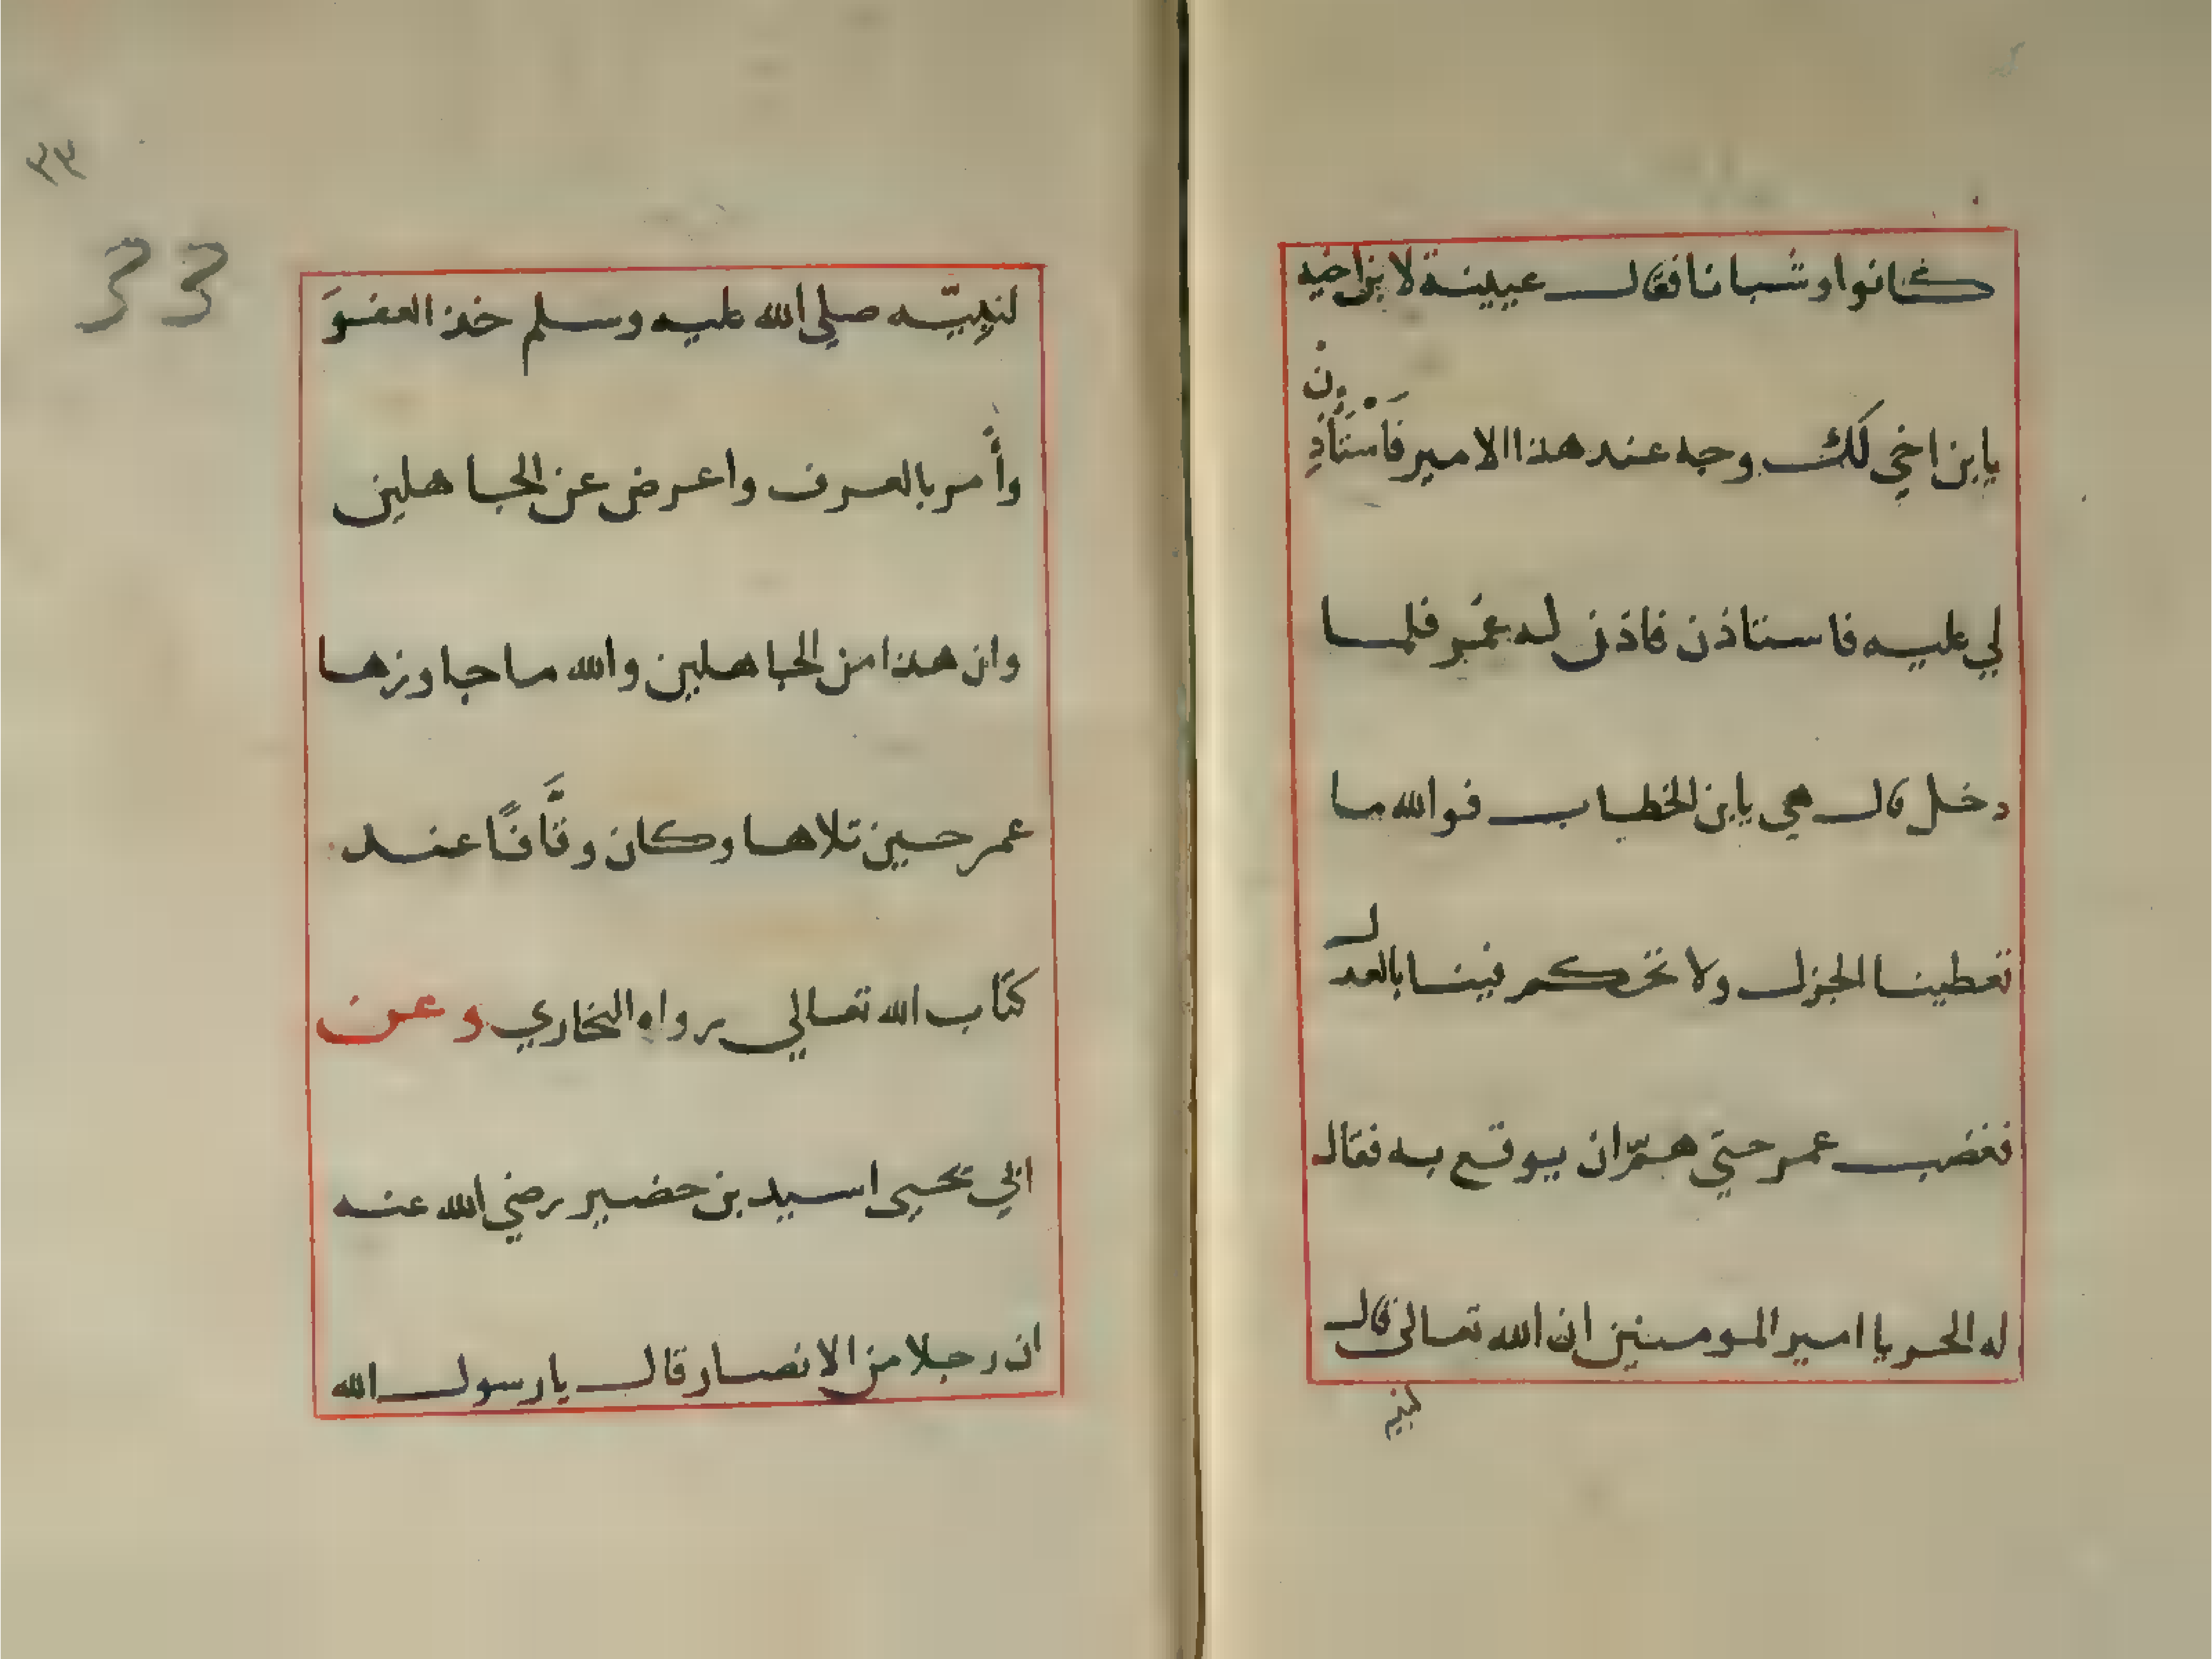 كانوا وشبانا فقال عيينة لابن اخيه
يابن اخي لك وجه عند هذا الامير فَاسْتَأذِن
لي عليه فاستاذن فاذن له عمر فلما
دخل قال هي يابن الخطاب فوالله ما
تعطينا الجزل ولا تحكم فينا بالعدل
فغضب عمر حتي همّ ان يوقع به فقال
له الحر يا امير المومنين ان الله تعالى قال
لنبيه
٣٣
33
لنبيّه صلي الله عليه وسلم خذ العفوَ
وأْمر بالعرف واعرض عن الجاهلين
وان هذا من الجاهلين والله ما جاوزها
عمر حين تلاها وكان وقَّافًا عند
كتاب الله تعالي رواه البخاري وعن
ابي يحيى اسيد بن حضير رضي الله عنه
ان رجلا من الانصار قال يا رسول الله